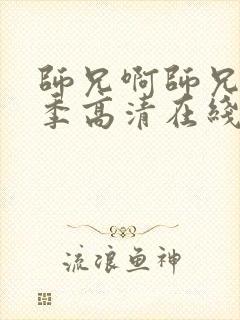 師兄啊師兄
季高清在綫
流浪鱼神